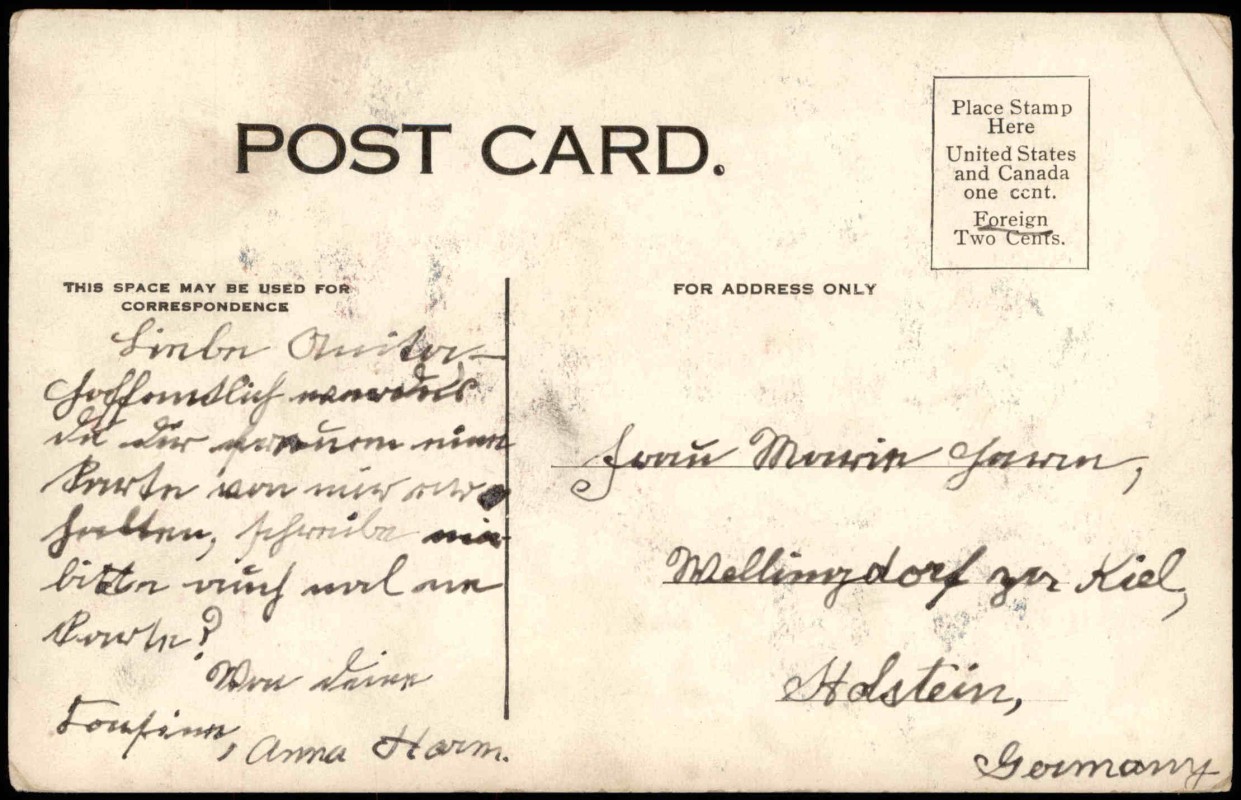 POST CARD.
Place Stamp
Here
United States
and Canada
one cent.
Foreign
Two Cents.
THIS SPACE MAY BE USED FOR
CORRESPONDENCE
FOR ADDRESS ONLY
Liebe Anita,
Hoffentlich
du dir freuen eine
Karte von mir er
halten, schreibe mir
bitte auch mal ne
Karte?
Von deine
Cousine, Anna Harm.
Frau Marie Harm,
Wellingdorf per Kiel,
Holstein,
Germany